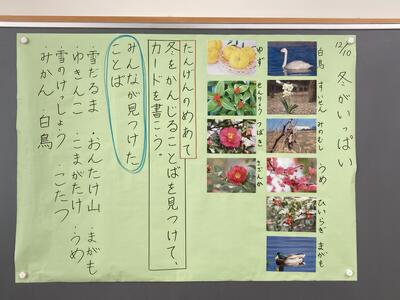 12/10
冬がいっぱい
白鳥
すいせん
みのむし
うめ
ひいらぎ
まがも
ゆず
せんりょう
つばき
さざんか
たんげんのめあて
冬をかんじることばを見つけて、
カードを書こう。
みんなが見つけた
ことば
・雪だるま ・おんたけ山 ・まがも
・ゆきんこ ・こまがたけ ・うめ
・雪のけっしょう ・こたつ
・みかん ・白鳥